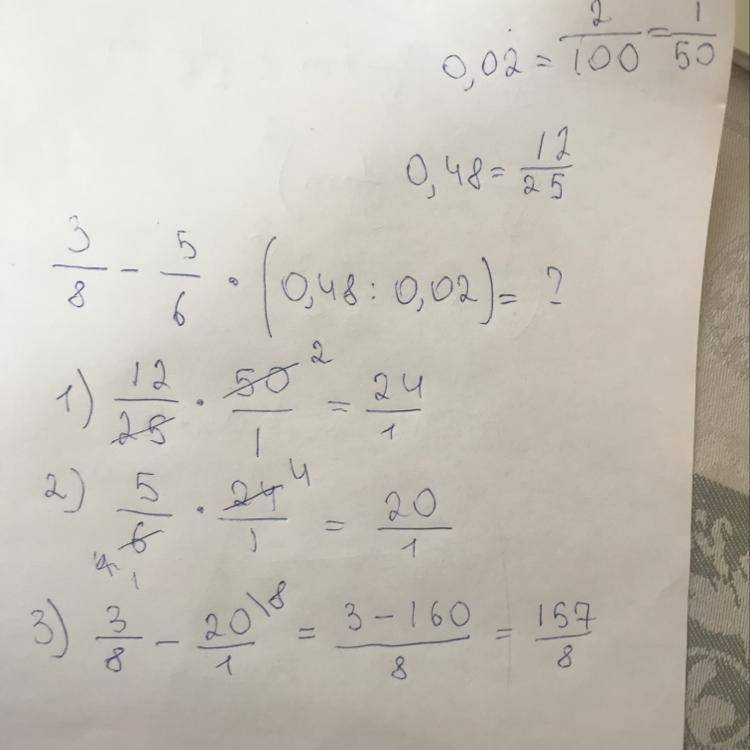 0,02 = 2/100 = 1/50
0,48 = 12/25
3/8 - 5/6 · (0,48 : 0,02) = ?
1) 12/25 · 50/1 2 = 24/1
2) 5/6 1 · 24/1 4 = 20/1
3) 3/8 - 20/1 \8 = 3-160/8 = 157/8